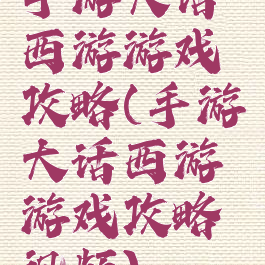 手游大话
西游游戏
攻略(手游
大话西游
游戏攻略
视频)